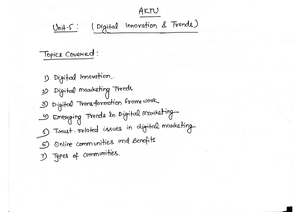 AKTU
Unit-5 : (Digital Innovation & Trends)
Topics Covered :
1) Digital Innovation.
2) Digital marketing Trends
3) Digital Transformation framework
4) Emerging Trends In Digital Marketing
5) Trust-related issues in digital marketing
6) Online Communities and Benefits
7) Types of Communities.